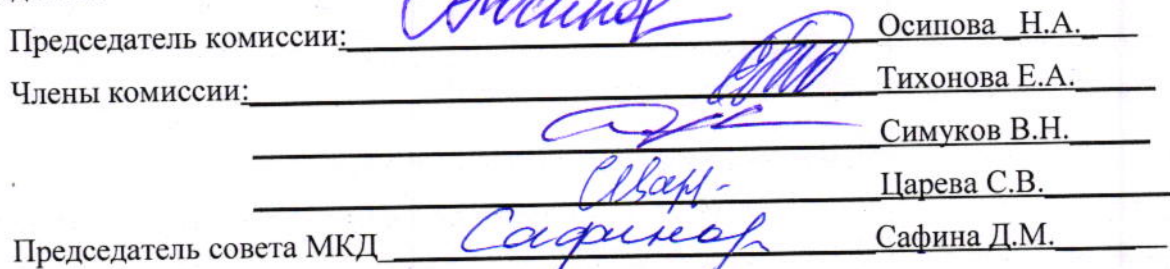 Председатель комиссии: Осипова Н.А.
Члены комиссии: Тихонова Е.А.
Симуков В.Н.
Царева С.В.
Председатель совета МКД Сафина Д.М.